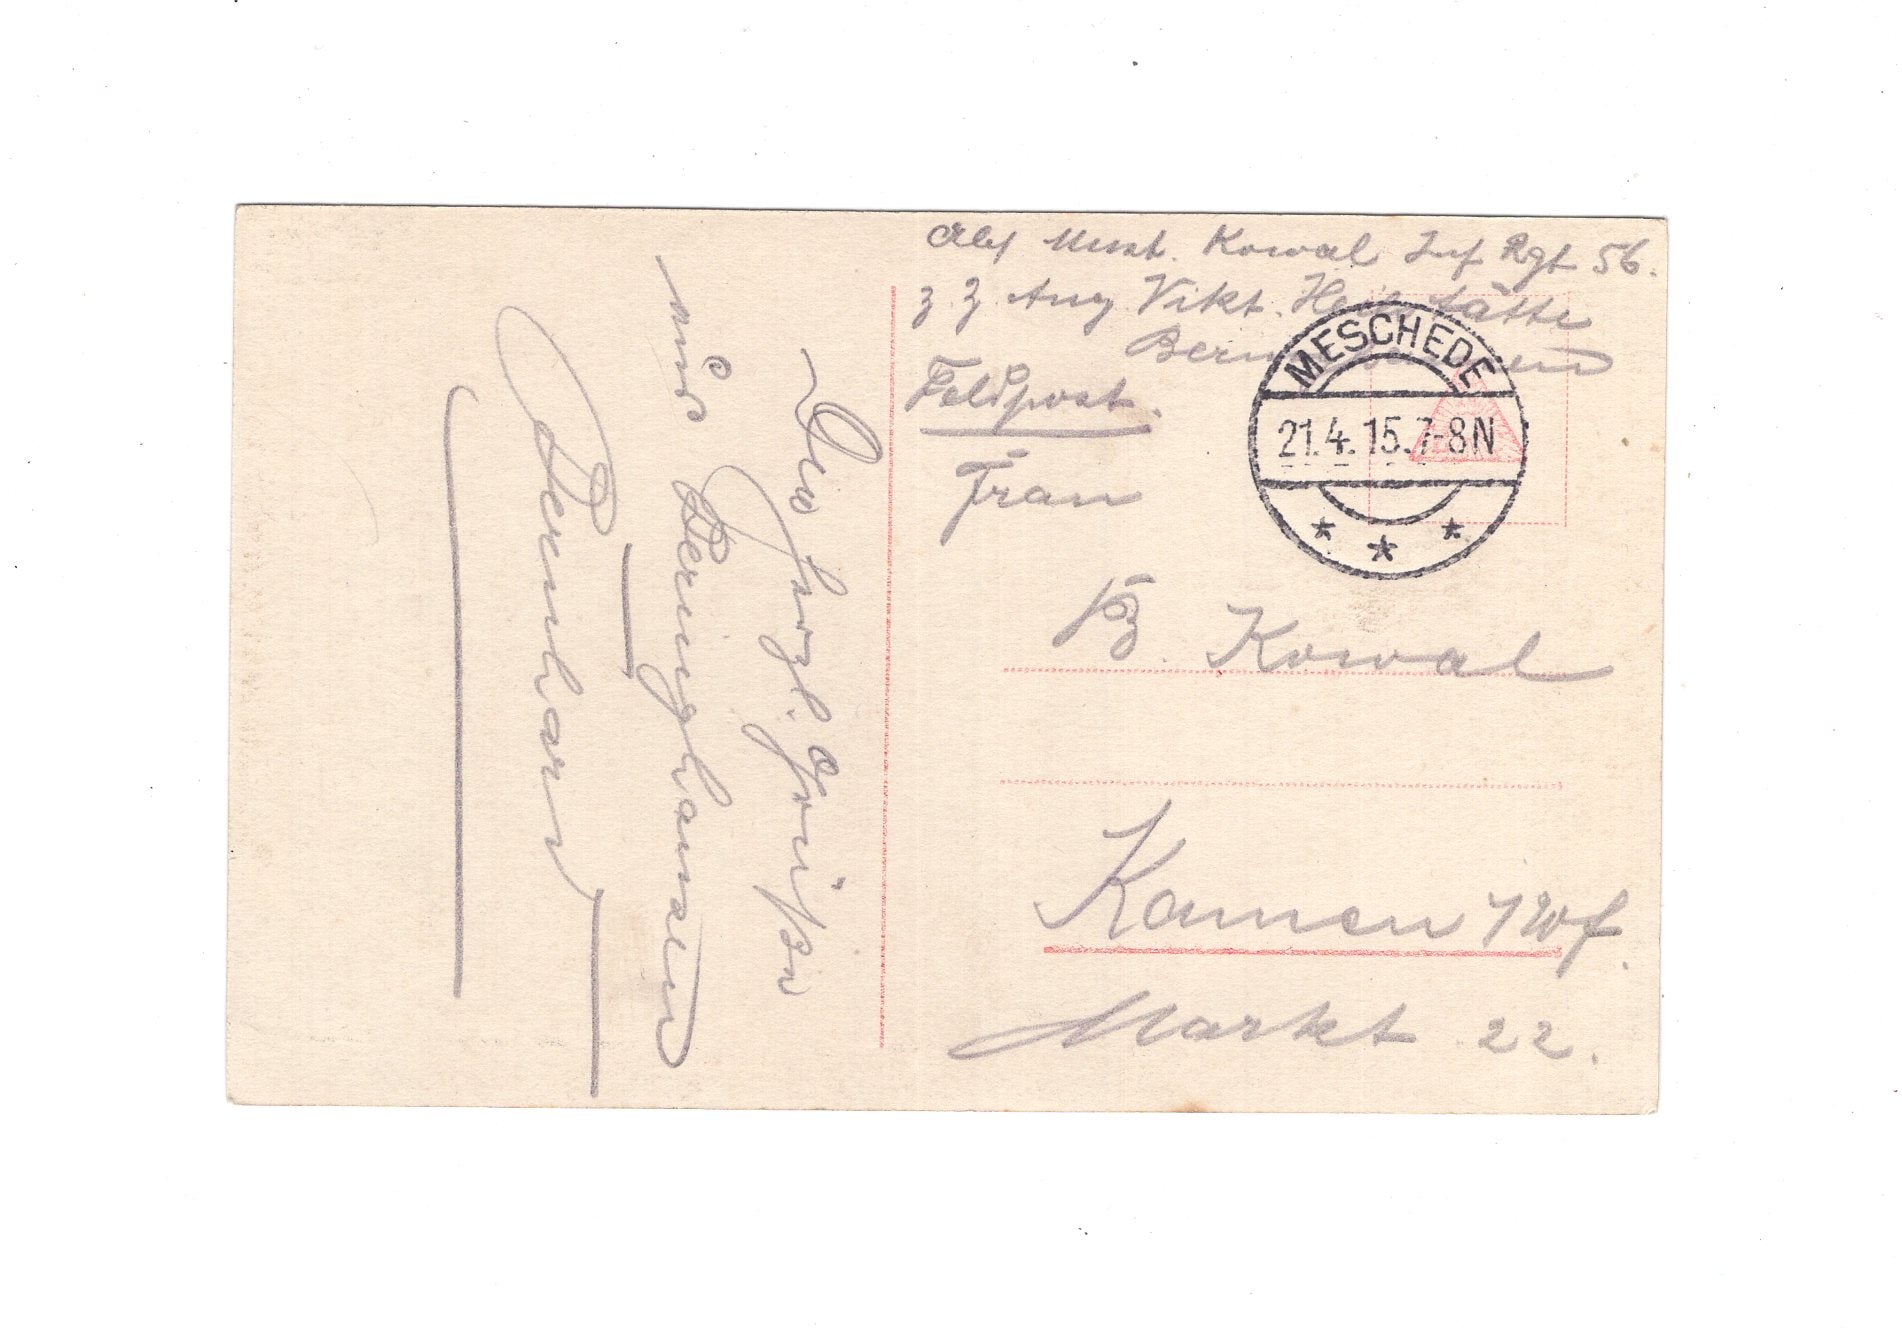 Abs Musk. Kowal Inf Rgt 56.
z. Z. Aug. Vikt. Heilstätte
Feldpost.
MESCHEDE
21.4.15.7-8N
Frau
B. Kowal
Kamen i/Wf.
Markt 22.
Die herzl. Grüße
aus Beringhausen
Bernhard